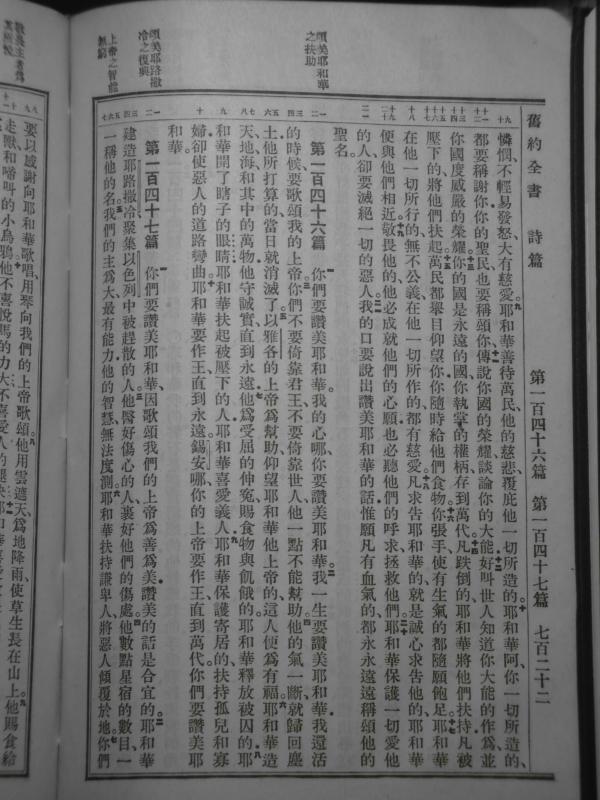 舊約全書　詩篇　第一百四十六篇　第一百四十七篇　七百二十二
憐憫不輕易發怒大有慈愛耶和華善待萬民他的慈悲覆庇他一切所造的耶和華阿你一切所造的
都要稱謝你你的聖民也要稱頌你傳說你國的榮耀談論你的大能好叫世人知道你大能的作爲並
你國度威嚴的榮耀你的國是永遠的國你執掌的權柄存到萬代凡跌倒的耶和華將他們扶持凡被
壓下的將他們扶起萬民都舉目仰望你你隨時給他們食物你張手使有生氣的都隨願飽足耶和華
在他一切所行的無不公義在他一切所作的都有慈愛凡求告耶和華的就是誠心求告他的耶和華
便與他們相近敬畏他的他必成就他們的心願也必聽他們的呼求拯救他們耶和華保護一切愛他
的人卻要滅絕一切的惡人我的口要說出讚美耶和華的話惟願凡有血氣的都永永遠遠稱頌他的
聖名
頌美耶和華
之扶助
第一百四十六篇　你們要讚美耶和華我的心哪你要讚美耶和華我一生要讚美耶和華我還活
的時候要歌頌我的上帝你們不要倚靠君王不要倚靠世人他一點不能幫助他的氣一斷就歸回塵
土他所打算的當日就消滅了以雅各的上帝爲幫助仰望耶和華他上帝的這人便爲有福耶和華造
天地海和其中的萬物他守誠實直到永遠他爲受屈的伸冤賜食物與飢餓的耶和華釋放被囚的耶
和華開了瞎子的眼睛耶和華扶起被壓下的人耶和華喜愛義人耶和華保護寄居的扶持孤兒和寡
婦卻使惡人的道路彎曲耶和華要作王直到永遠錫安哪你的上帝要作王直到萬代你們要讚美耶
和華
頌美耶路撒
冷之復興
第一百四十七篇　你們要讚美耶和華因歌頌我們的上帝爲善爲美讚美的話是合宜的耶和華
建造耶路撒冷聚集以色列中被趕散的人他醫好傷心的人裹好他們的傷處他數點星宿的數目一
一稱他的名我們的主爲大最有能力他的智慧無法度測耶和華扶持謙卑人將惡人傾覆於地你們
上帝之智能
無窮
要以感謝向耶和華歌唱用琴向我們的上帝歌頌他用雲遮天爲地降雨使草生長在山上他賜食給
走獸和啼叫的小烏鴉他不喜悅馬的力大不喜愛人的